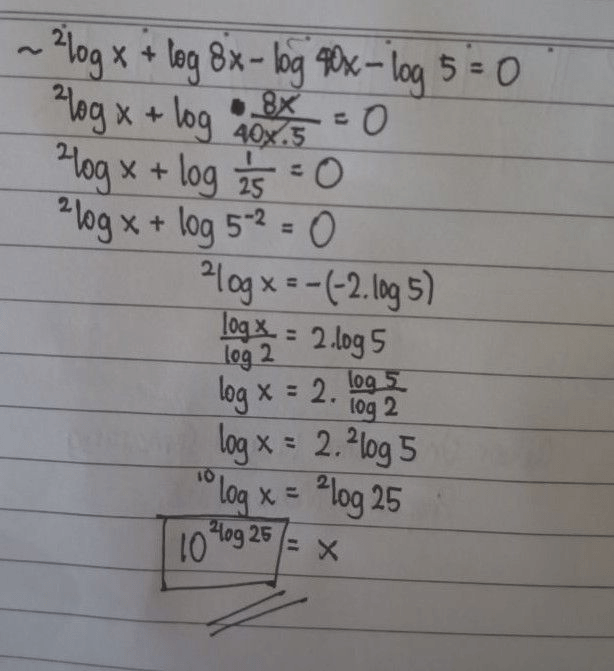 ~ ²log x + log 8x - log 40x - log 5 = 0
²log x + log 8x/40x.5 = 0
²log x + log 1/25 = 0
²log x + log 5⁻² = 0
²log x = -(-2.log 5)
log x/log 2 = 2.log 5
log x = 2. log 5/log 2
log x = 2.²log 5
¹⁰log x = ²log 25
10^²log 25 = x